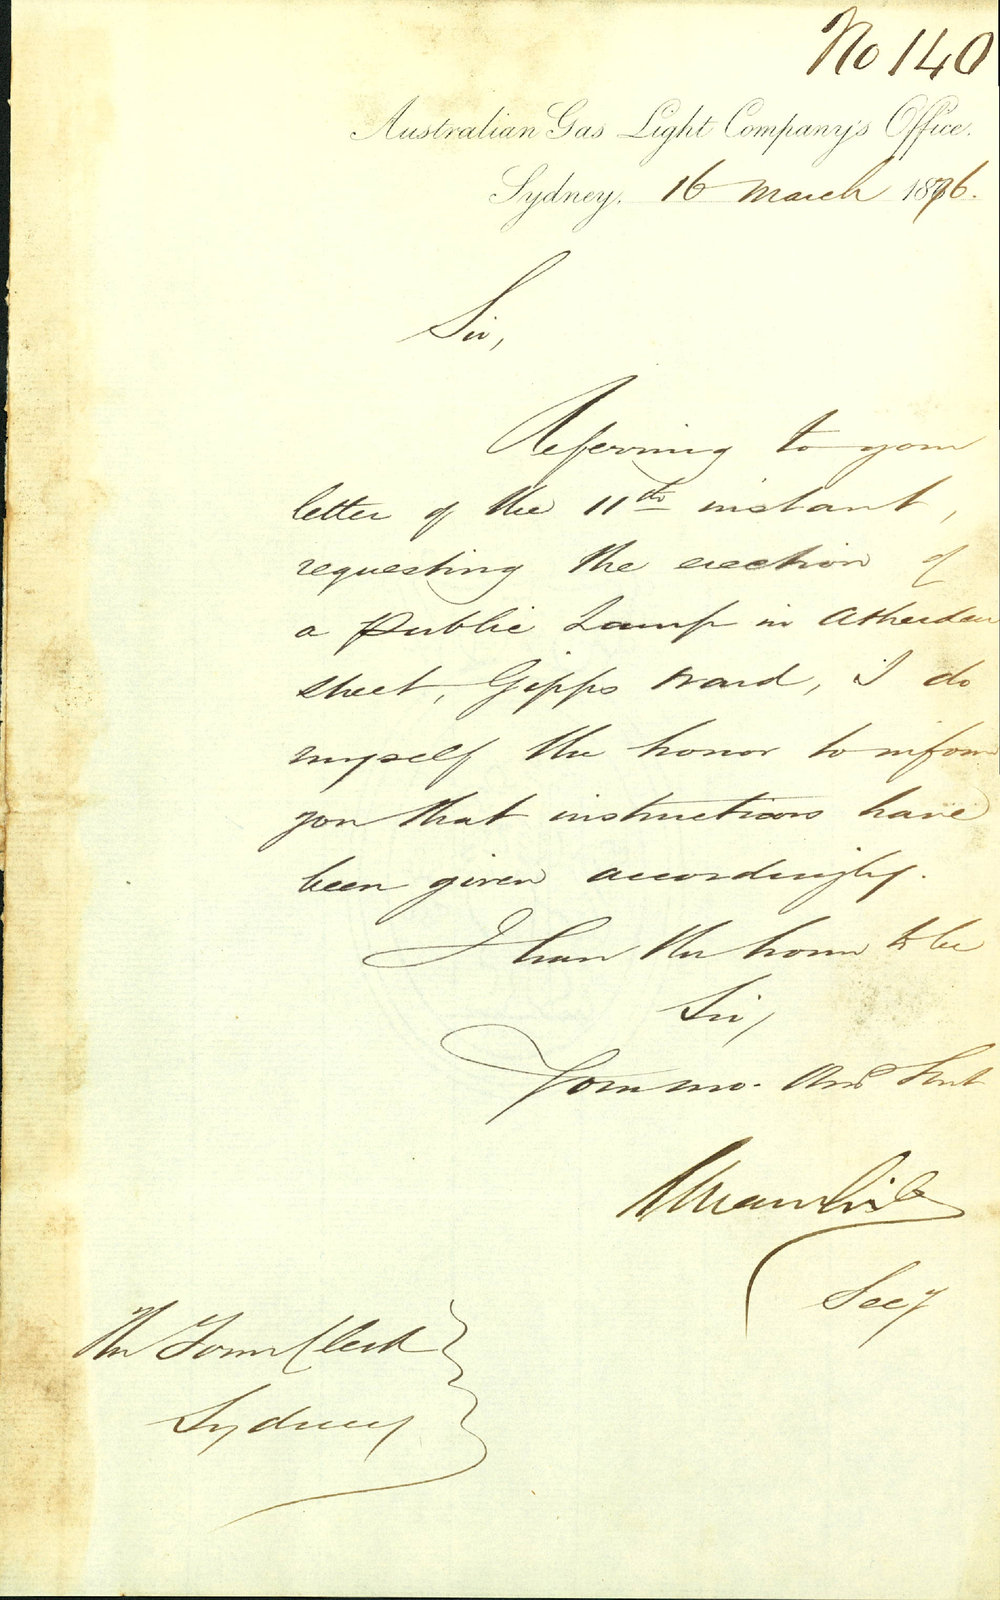 No 140
Australian Gas Light Company's Office.
Sydney. 16 March 1876.
Sir,
Referring to your
letter of the 11th instant,
requesting the erection of
a Public Lamp in Atherden
street, Gipps Ward, I do
myself the honor to inform
you that instructions have
been given accordingly.
I have the honor to be
Sir,
Your mo. Obd Servt
Secy
The Town Clerk
Sydney